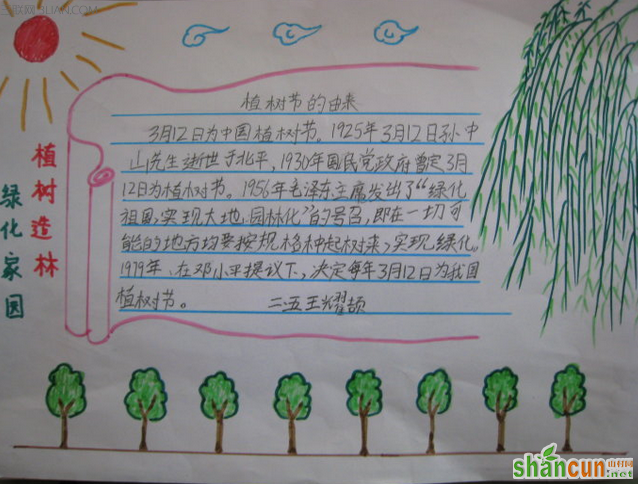 植树节的由来
3月12日为中国植树节。1925年3月12日孙中
山先生逝世于北平，1930年国民党政府曾定3月
12日为植树节。1956年毛泽东主席发出了“绿化
祖国，实现大地园林化”的号召，即在一切可
能的地方均要按规格种起树来，实现绿化。
1979年，在邓小平提议下，决定每年3月12日为我国
植树节。
二五王耀颉
植树造林
绿化家园
shancun
.net